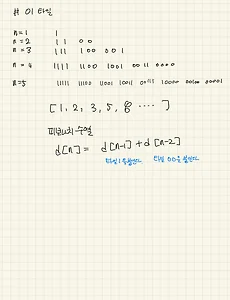 # 01 타일
n=1 1
n=2 11 00
n=3 111 100 001
n=4 1111 1100 1001 0011 0000
n=5 11111 11100 11001 10011 00111 10000 00100 00001
[1, 2, 3, 5, 8 ···· ]
피보나치 수열
d[n] = d[n-1] + d[n-2]
타일 1 타일 00을